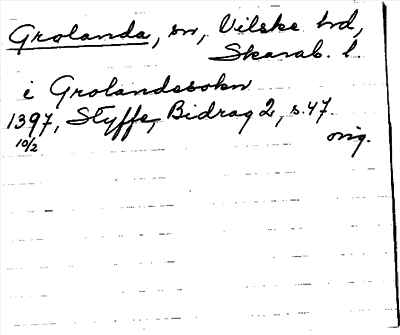 Grolanda, sn, Vilske hd,
Skarab. l.
i Grolandasokn
1397, Styffe, Bidrag 2, s. 47.
10/2 orig.